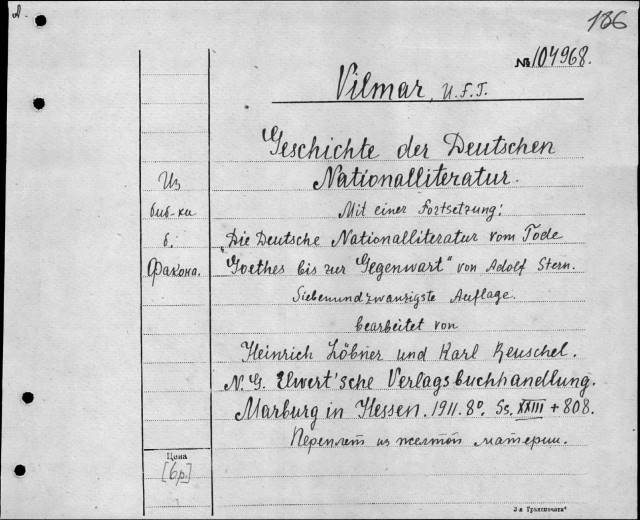 A.
186
№ 104968.
Vilmar, U.F.T.
Geschichte der Deutschen
Nationalliteratur.
Mit einer Fortsetzung:
„Die Deutsche Nationalliteratur vom Tode
Goethes bis zur Gegenwart" von Adolf Stern.
Siebenundzwanzigste Auflage.
bearbeitet von
Heinrich Löbner und Karl Reuschel.
N. G. Elwert'sche Verlagsbuchhandlung.
Marburg in Hessen. 1911. 8º. Ss. XXIII + 808.
Переплет из желтой материи.
Из
биб-ки
б.
Факона.
Цена
[6р]
3-я Транспечать